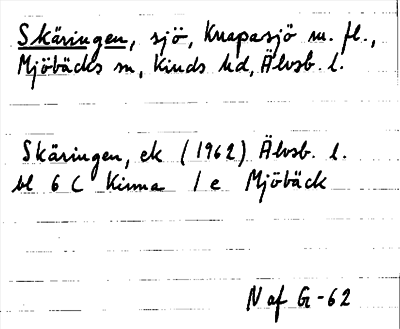 Skäringen, sjö, Knapasjö m. fl.,
Mjöbäcks sn, Kinds hd, Älvsb. l.
Skäringen, ek (1962) Älvsb. l.
bl 6 C Kinna 1 e Mjöbäck
N af G-62